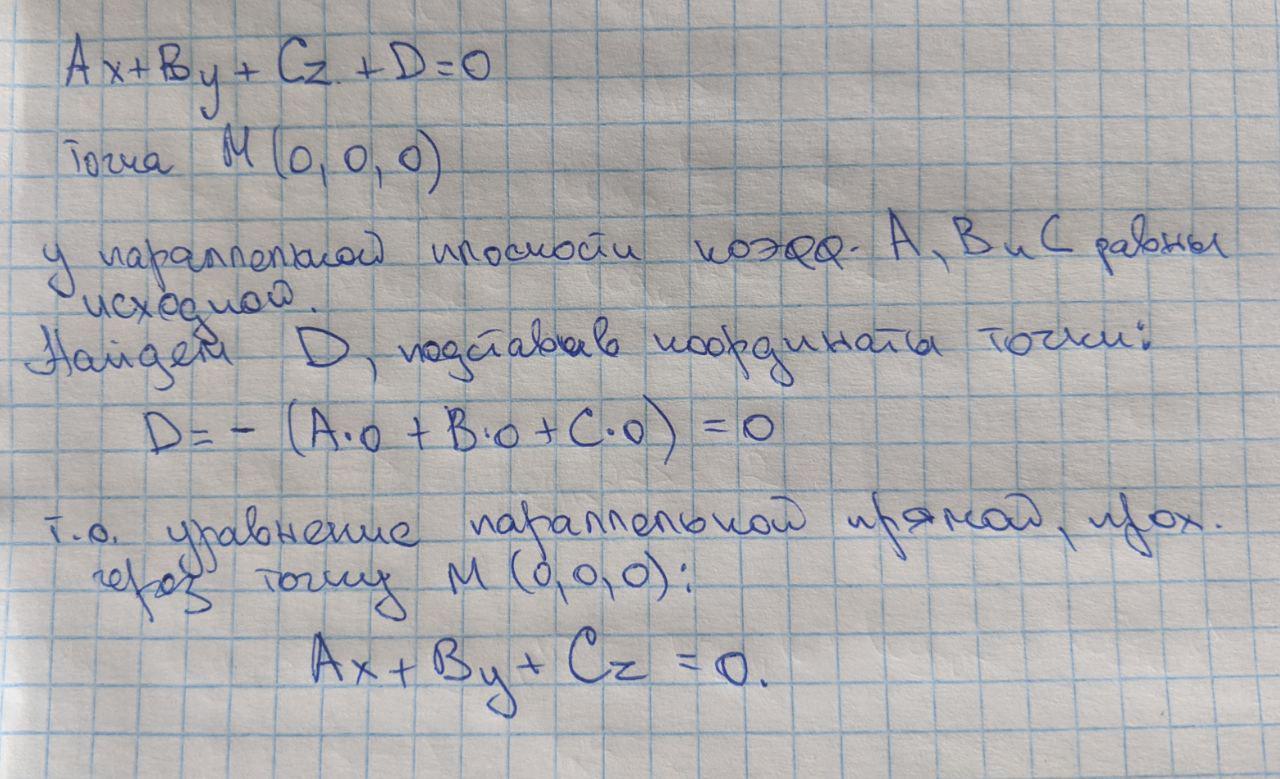 Ax+By+Cz+D=0
точка M(0,0,0)
у параллельной плоскости коэфф. A, B и C равны
исходной.
Найдем D, подставив координаты точки:
D=-(A·0+B·0+C·0)=0
т.о. уравнение параллельной прямой, прох.
через точку M(0,0,0):
Ax+By+Cz=0.